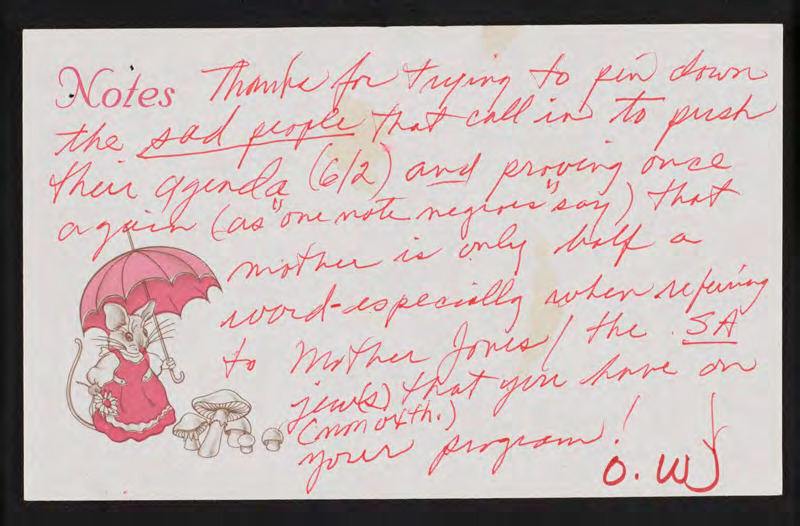 Notes Thanks for trying to pin down
the sad people that call in to push
their agenda (6/2) and proving once
again (as "one note negroes" say) that
mother is only half a
word-especially when refering
to Mother Jones / the SA
jew(s) that you have on
(nonorth.)
your program!
O.W